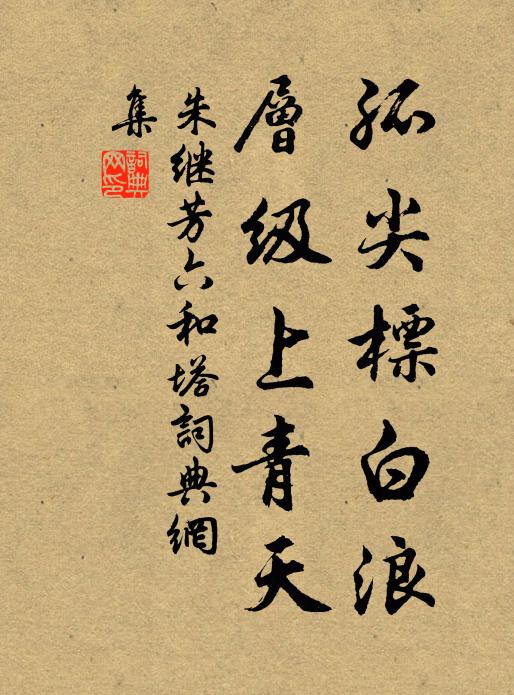 孤尖標白浪
層级上青天
朱继芳六和塔詞典網
集
詞典
网印